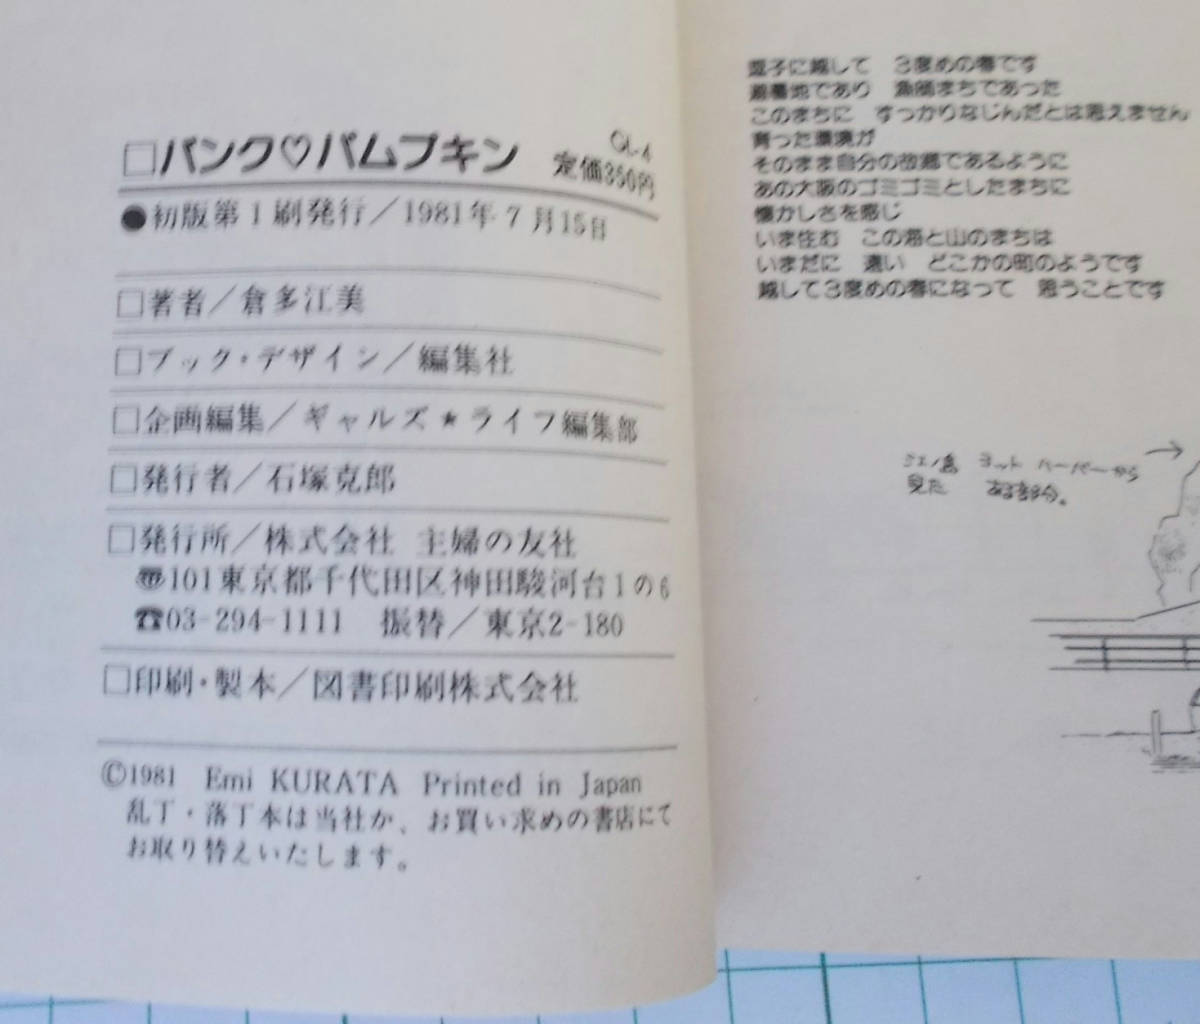 □パンク♡パムプキン GL-4
定価350円
●初版第1刷発行／1981年7月15日
□著者／倉多江美
□ブック・デザイン／編集社
□企画編集／ギャルズ★ライフ編集部
□発行者／石塚克郎
□発行所／株式会社 主婦の友社
〠101東京都千代田区神田駿河台1の6
☎03-294-1111 振替／東京2-180
□印刷・製本／図書印刷株式会社
©1981 Emi KURATA Printed in Japan
乱丁・落丁本は当社か、お買い求めの書店にて
お取り替えいたします。
逗子に越して 3度めの春です
避暑地であり 漁師まちであった
このまちに すっかりなじんだとは思えません
育った環境が
そのまま自分の故郷であるように
あの大阪のゴミゴミとしたまちに
懐かしさを感じ
いま住む この海と山のまちは
いまだに 遠い どこかの町のようです
越して3度めの春になって 思うことです
江ノ島 ヨット ハーバーから
見た ある部分。